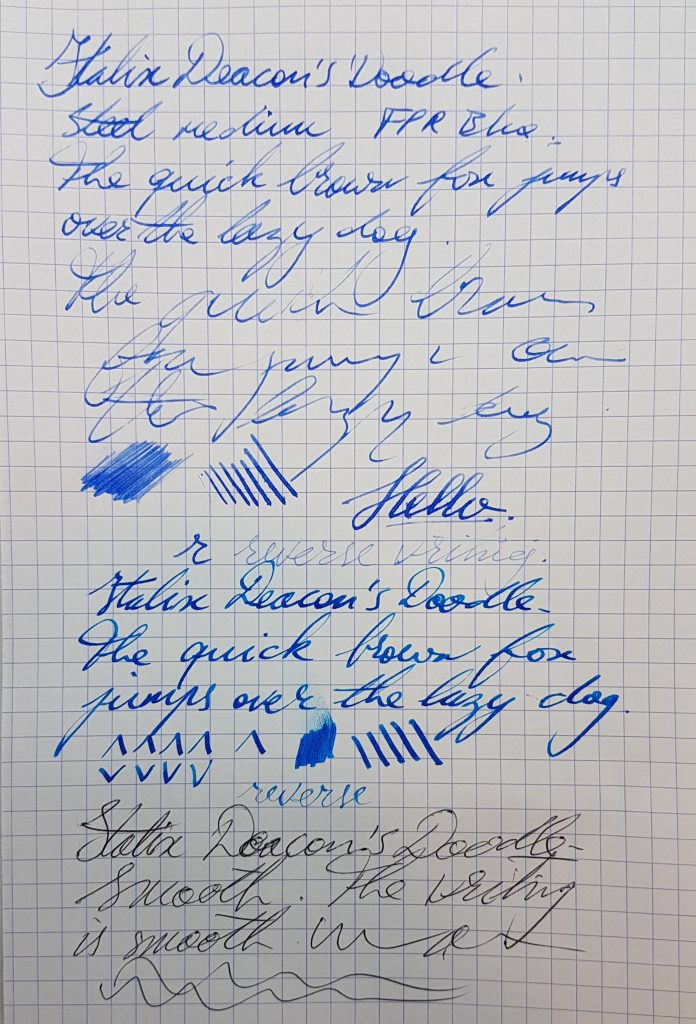 Italix Deacon's Doodle.
medium FPR Blue.
The quick brown fox jumps
over the lazy dog.
The quick brown
fox jumps
the lazy dog
Hello.
r reverse writing.
Italix Deacon's Doodle-
The quick brown fox
jumps over the lazy dog.
reverse
Italix Deacon's Doodle-
Smooth. The writing
is smooth